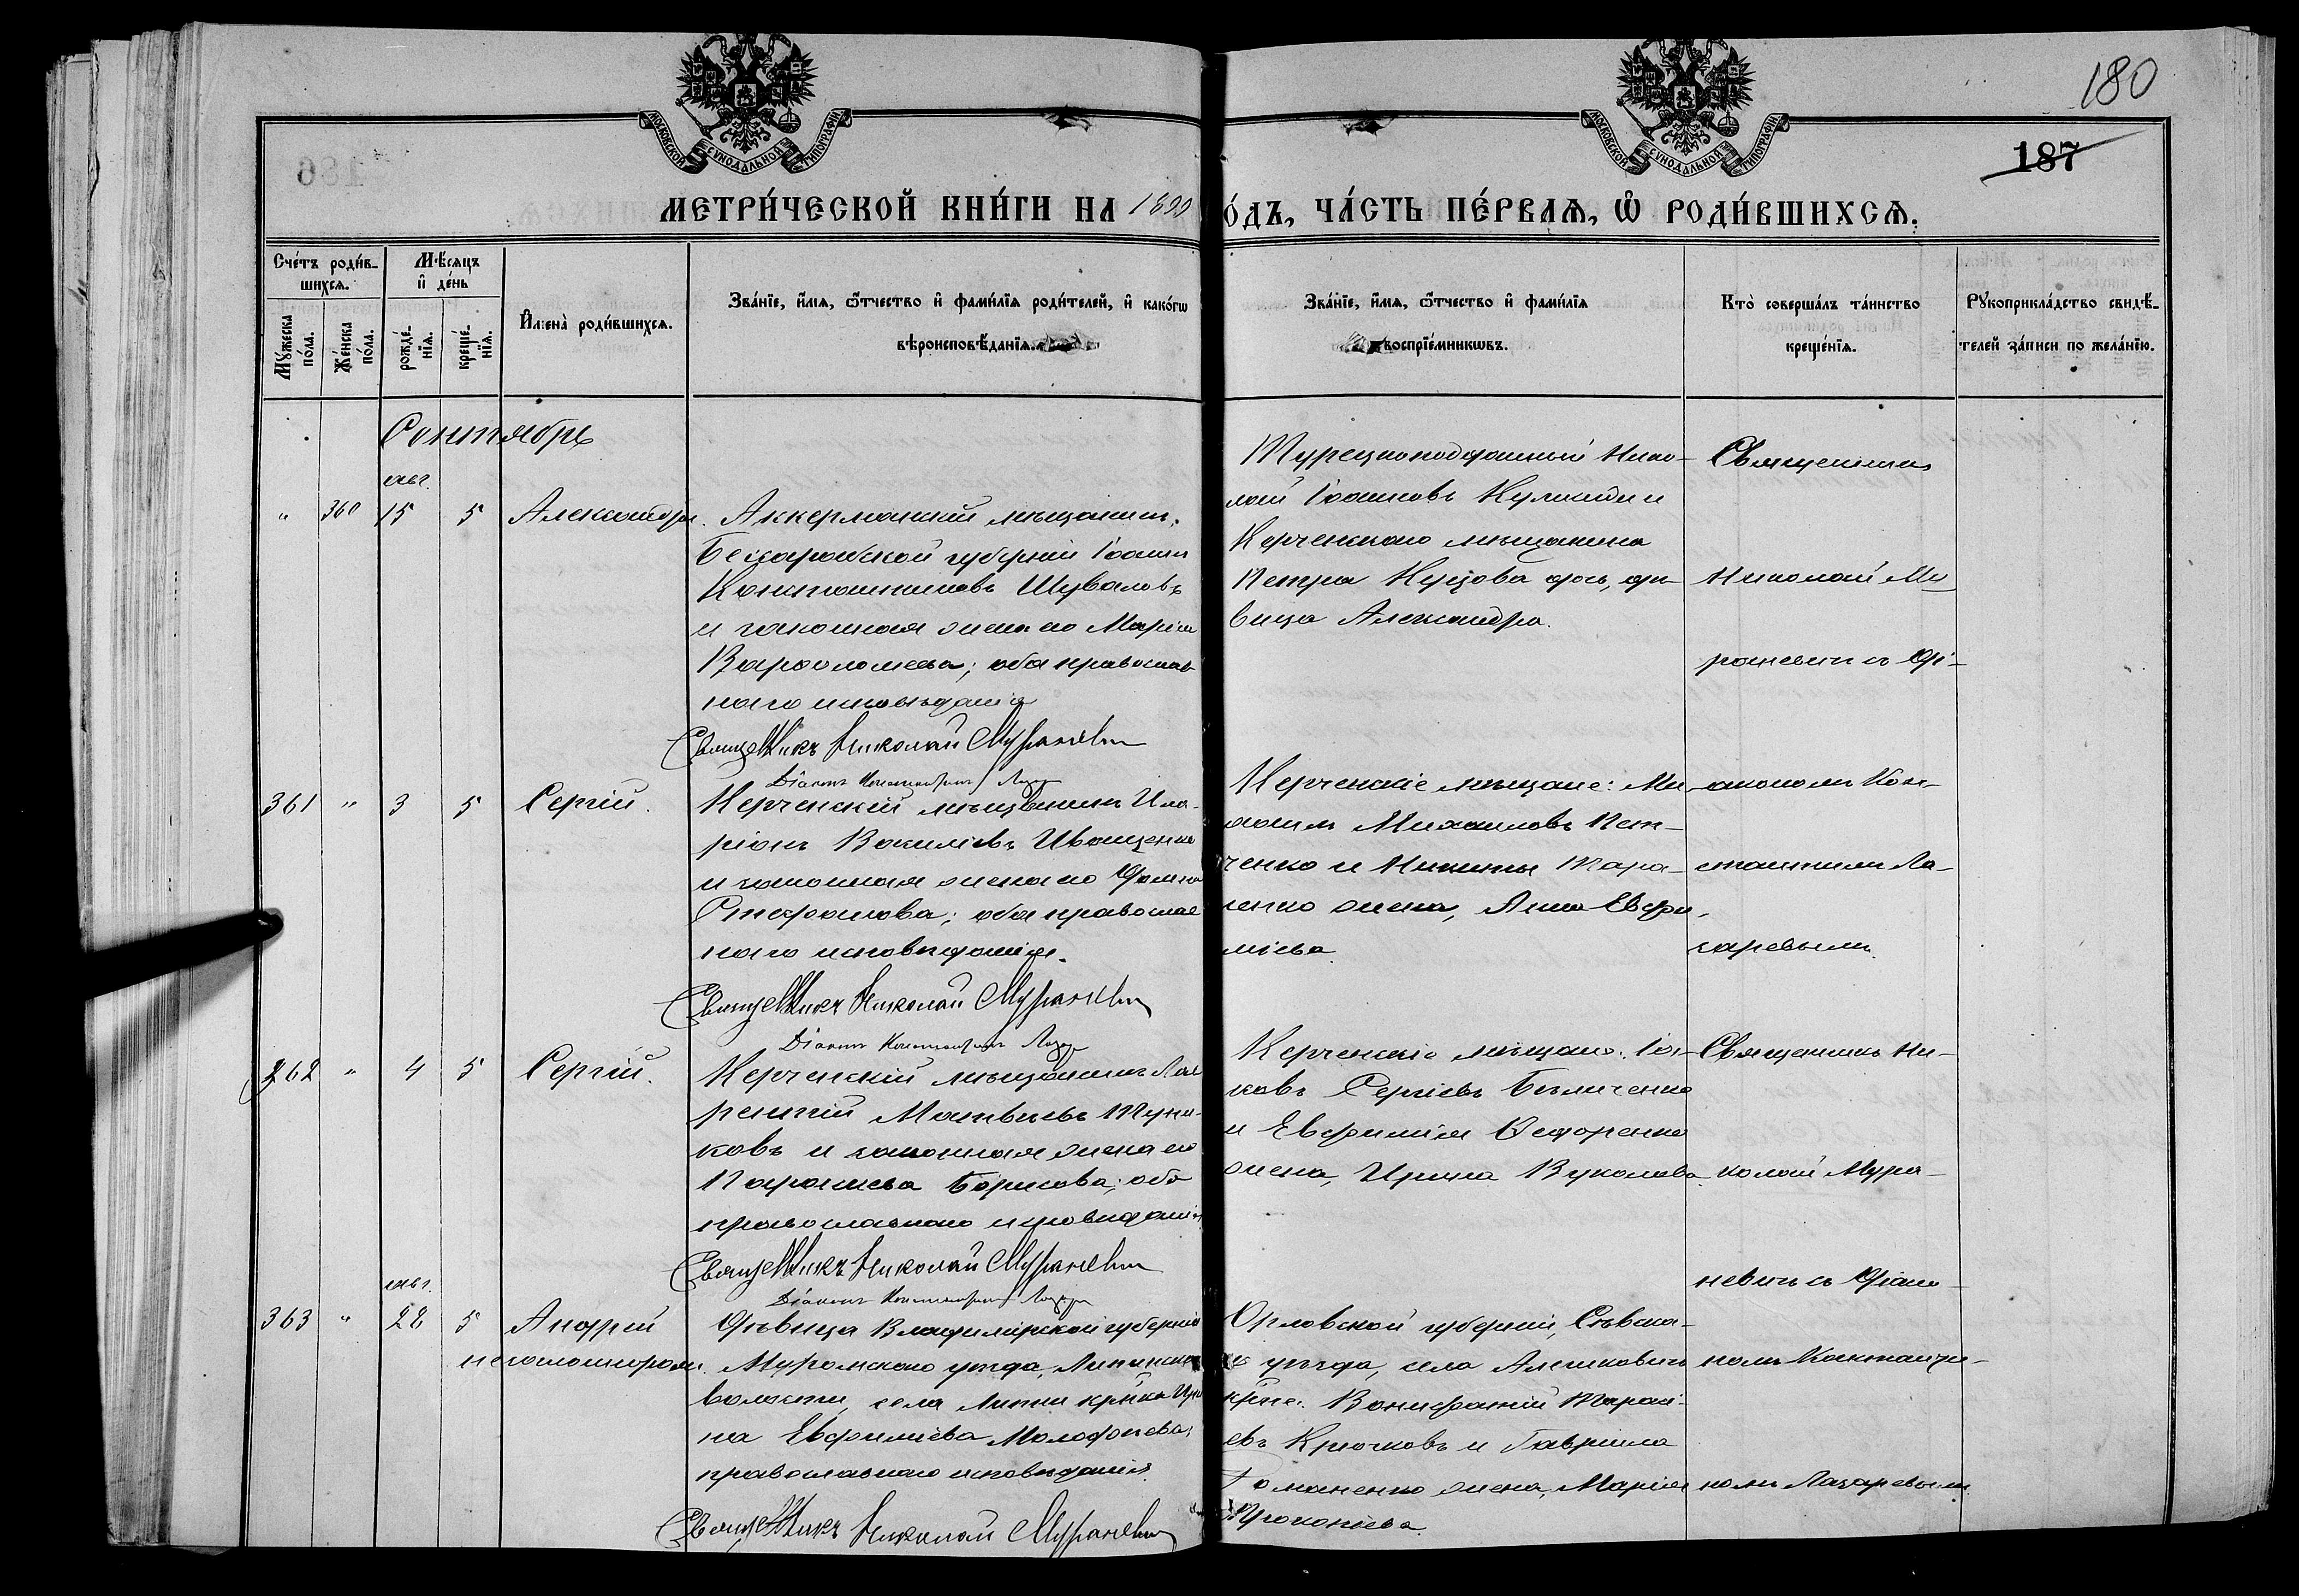 180
187
МОСКОВСКОЙ СѴНОДАЛЬНОЙ ТИПОГРАФІИ
МОСКОВСКОЙ СѴНОДАЛЬНОЙ ТИПОГРАФІИ
МЕТРИ́ЧЕСКОЙ КНИ́ГИ НА 1890
О́ДЪ, ЧА́СТЬ ПЕ́РВАѦ, Ѡ҆ РОДИ́ВШИХСѦ.
Сче́тъ роди́в-
шихсѧ.
Мꙋ́жеска по́ла.
Же́нска по́ла.
Мѣ́сѧцъ
и҆ де́нь
рожде́-
нїѧ.
креще́-
нїѧ.
И҆мена̀ роди́вшихсѧ.
Зва́нїе, и҆́мѧ, ѻ҆́тчество и҆ фами́лїѧ роди́телей, и҆ како́гѡ
вѣроисповѣ́данїѧ.
Зва́нїе, и҆́мѧ, ѻ҆́тчество и҆ фами́лїѧ
воспрїе́мникѡвъ.
Кто̀ соверша́лъ та́инство
креще́нїѧ.
Рꙋкоприкла́дство свидѣ́-
телей за́писи по жела́нїю.
Сентябрь
авг.
" 360 15 5 Александра.
Аккерманскій мѣщанинъ,
Бессарабской губерніи Іоаннъ
Константиновъ Шуваловъ
и законная жена его Марія
Варѳоломеева; оба православ
наго исповѣданія
Священникъ Николай Мураневич
Діаконъ Константинъ Лазар
Турецкоподданный Нико-
лай Іоанновъ и
Керченскаго мѣщанина
Петра дочь, дѣ-
вица Александра.
Священникъ
Николай Му
раневичъ съ Ді-
361 " 3 5 Сергій.
Керченскій мѣщанинъ Ила-
ріонъ Василіевъ Иващенко
и законная жена его
Стефанова; оба православ
наго исповѣданія.
Священникъ Николай Мураневич
Діаконъ Константинъ Лазар
Керченскіе мѣщане: Ми
хаилъ Михаиловъ Пет-
ченко и Никиты Тара-
сенко жена, Анна Евфи-
міева.
акономъ Кон-
стантиномъ Ла-
заревымъ.
362 " 4 5 Сергій.
Керченскій мѣщанинъ Лав
рентій Матвѣевъ
ковъ и законная жена его
Параскева Борисова; оба
православнаго исповѣданія
Священникъ Николай Мураневич
Діаконъ Константинъ Лазар
Керченскіе мѣщане: Іоа-
ковъ Сергіевъ Бѣличенко
и Евфимія Ѳедоренко
жена, Ирина Вуколова.
Священникъ Ни-
колай Мура-
невичъ съ Діако-
авг.
363 " 28 5 Андрей
незаконнорожд.
Дѣвица Владимірской губерніи
Муромскаго уѣзда, Липинской
волости, села Липни крѣка Ири
на Евфиміева
православнаго исповѣданія.
Священникъ Николай Мураневич
Орловской губерніи, Сѣвска-
го уѣзда, села Алешковичъ
крѣне: Вонифатій Тарасі-
евъ Крючковъ и Гавріила
Романенко жена, Марія
Прокопіева.
номъ Константи-
номъ Лазаревымъ